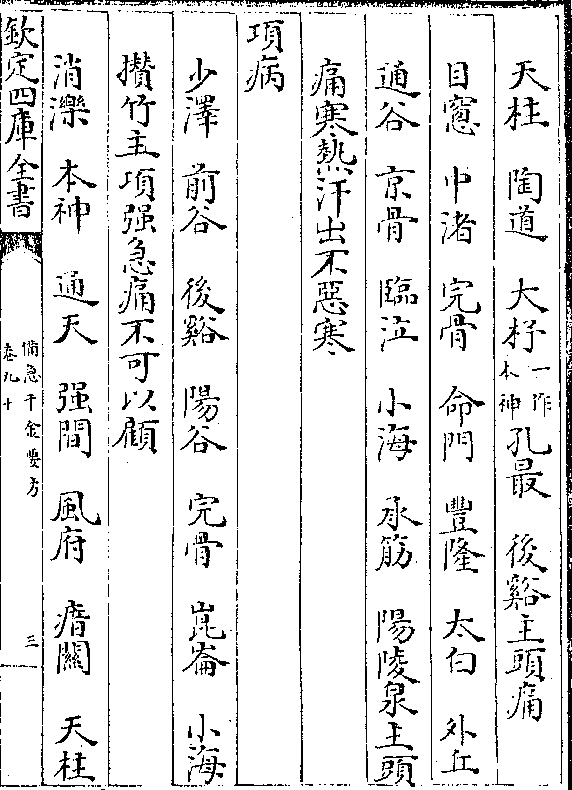 天柱 陶道 大杼一作本神 孔最 後谿主頭痛
目窻 中渚 完骨 命門 豐隆 太白 外丘
通谷 京骨 臨泣 小海 承筋 陽陵泉主頭
痛寒熱汗出不惡寒
項病
少澤 前谷 後谿 陽谷 完骨 崑崙 小海
攅竹主項强急痛不可以顧
消濼 本神 通天 强間 風府 瘖關 天柱
欽定四庫全書
備急千金要方
卷九十
三